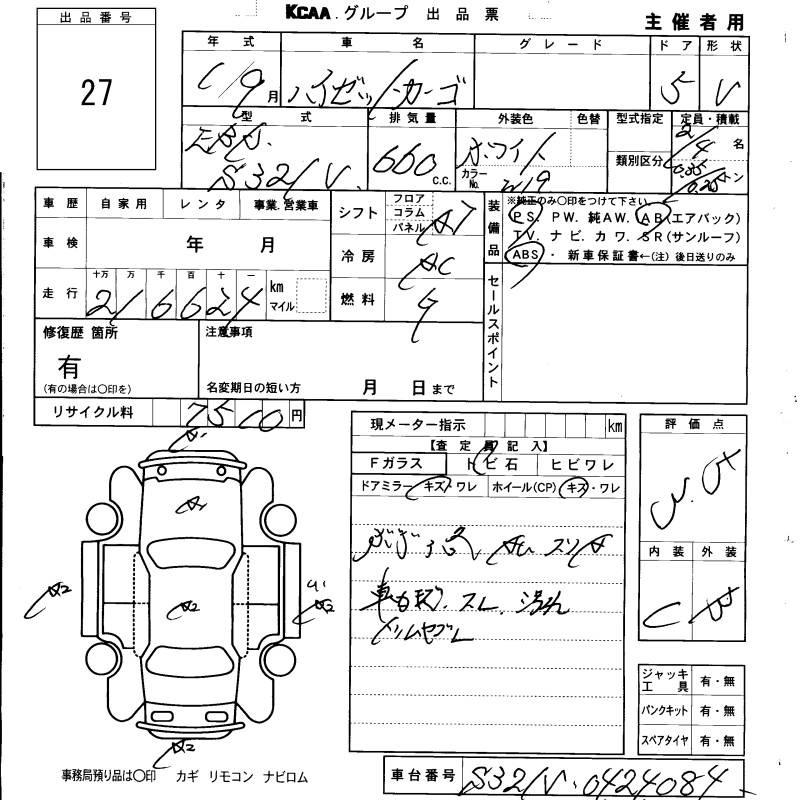 KCAA グループ 出品票
主催者用
出品番号
27
年式 車名 グレード ドア 形状
9月 ハイゼットカーゴ 5 V
型式 排気量 外装色 色替 型式指定 定員・積載
EBD. 660 c.c. ホワイト 2/4 名
S321V カラーNo. W19 類別区分 0.35/0.25 トン
車歴 自家用 レンタ 事業.営業車
シフト フロア コラム パネル AT
装備品
※純正のみ〇印をつけて下さい。
PS. PW. 純AW. AB(エアバック)
TV. ナビ. カワ. SR(サンルーフ)
ABS ・ 新車保証書←(注) 後日送りのみ
車検 年 月
冷房 AC
走行 十万 万 千 百 十 一 km マイル
216624
燃料 G
セールスポイント
修復歴 箇所
有
(有の場合は〇印を)
注意事項
名変期日の短い方 月 日まで
リサイクル料 7510円
現メーター指示 km
【査定員記入】
Fガラス トビ石 ヒビワレ
ドアミラー キズ・ワレ ホイール(CP) キズ・ワレ
スリA
スレ. 汚れ
評価点
内装 外装
C
A1
A1
A2 A2 A2
A2
ジャッキ工具 有・無
パンクキット 有・無
スペアタイヤ 有・無
事務局預り品は〇印 カギ リモコン ナビロム
車台番号 S321V-0424084